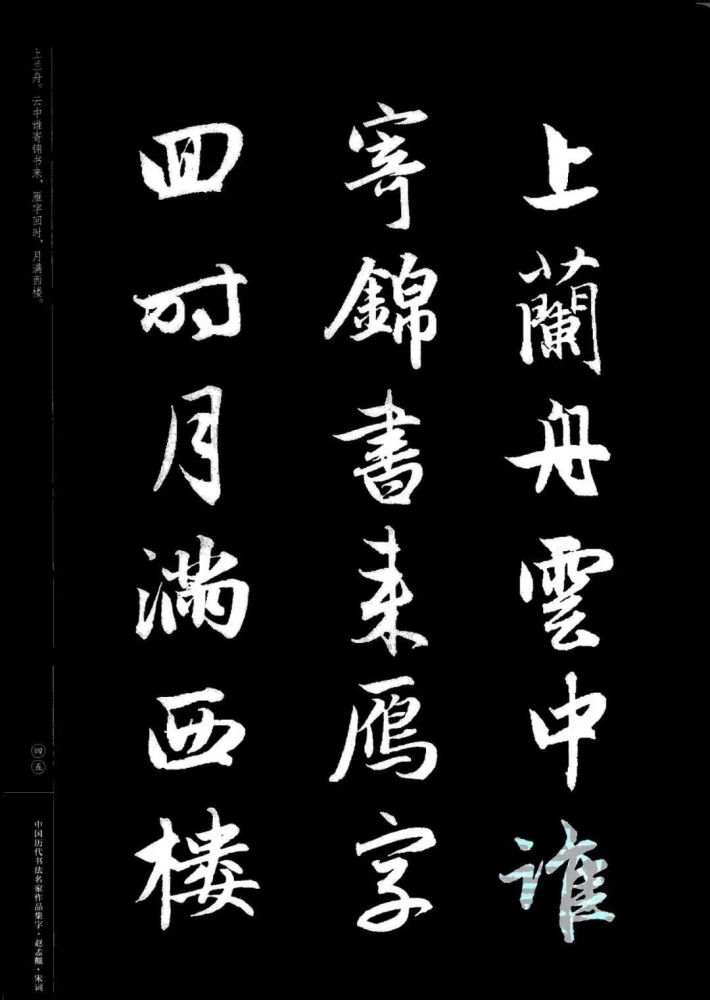 上蘭舟雲中誰
寄錦書来鴈字
回時月滿西樓
上兰舟。云中谁寄锦书来，雁字回时，月满西楼。
四五
中国历代书法名家作品集字·赵孟頫·宋词